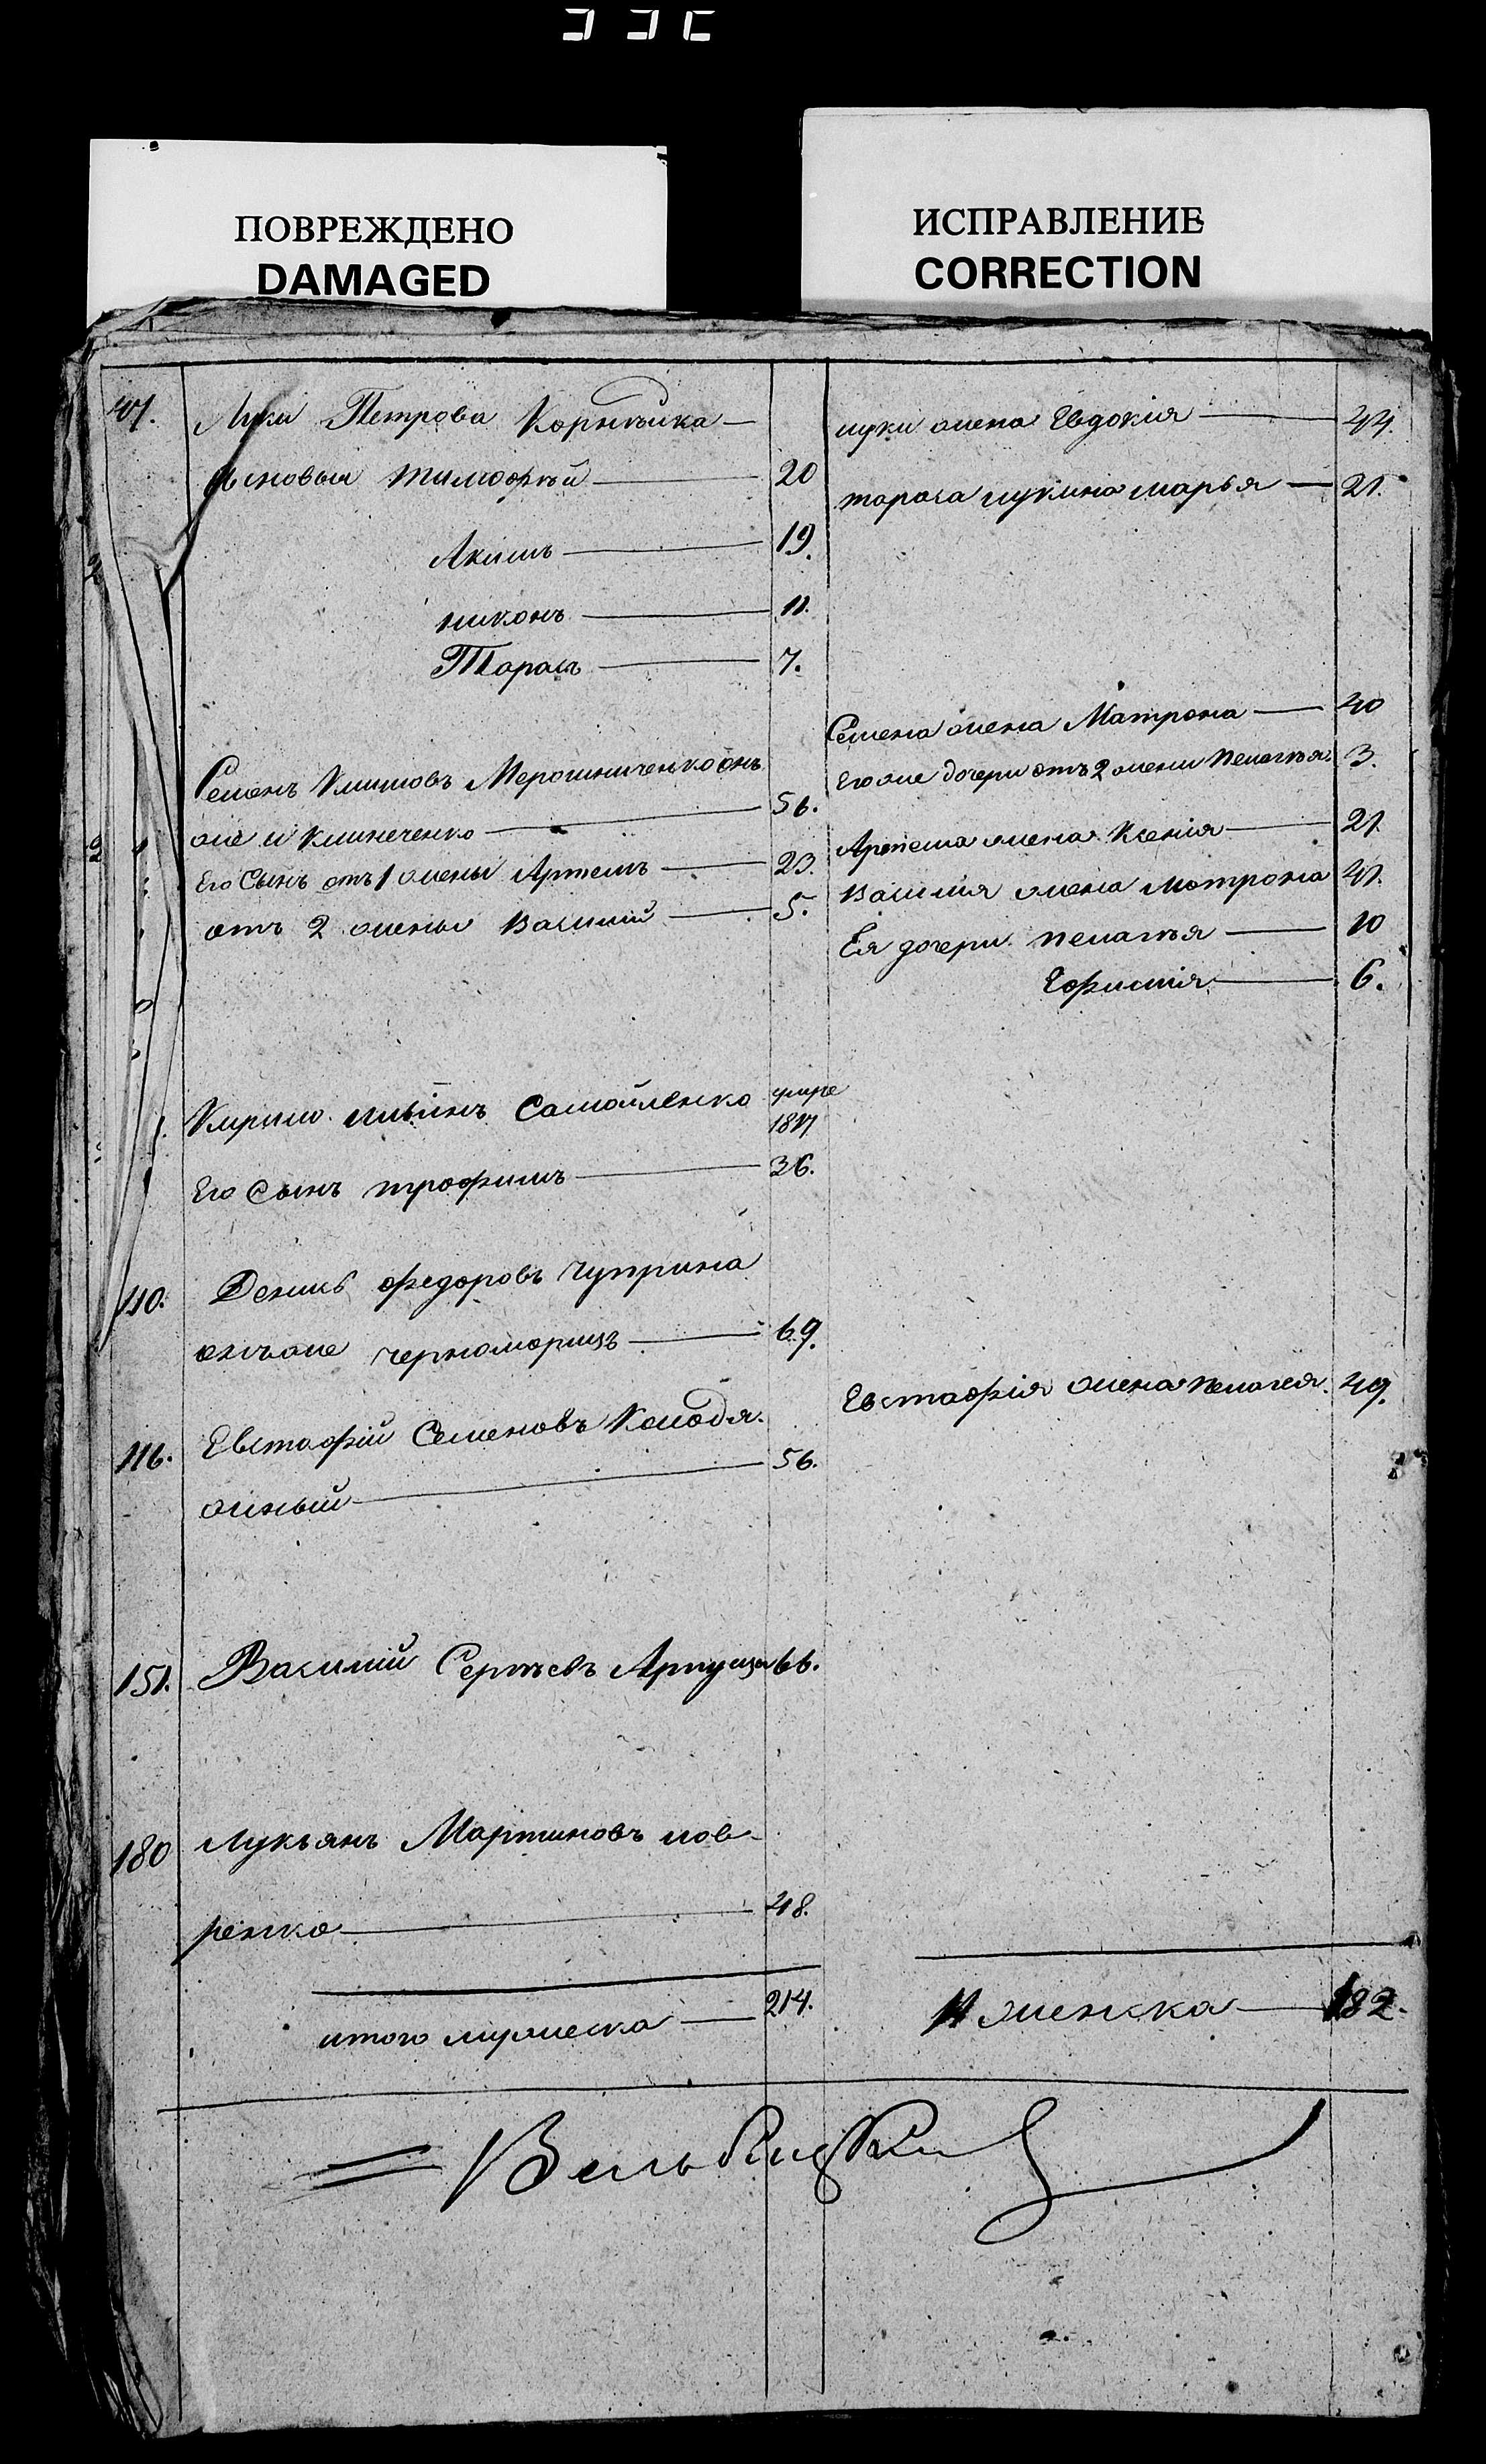 ПОВРЕЖДЕНО
DAMAGED
ИСПРАВЛЕНИЕ
CORRECTION
47. Луки Петрова Корнѣйка
сыновья тимофѣй 20
Акимъ 19.
никонъ 11.
Тарасъ 7.
Семенъ Климовъ Мерошниченко онъ
же и Климченко 56.
Его Сынъ отъ 1 жены Артемъ 23.
отъ 2 жены Василий 5.
Кирило Самойленко умре
1817
Его Сынъ трофимъ 36.
110. Денисъ федоровъ Чуприна
онъ же черноморецъ 69.
116. Евстафий Семеновъ Колодя
жный 56.
151. Василий Сергѣевъ 66.
180 Лукьянъ Мартиновъ лов
ренко 48.
итого мужеска 214.
луки жена Евдокия 44.
тараса лукина марья 21.
Семена жена Матрона 40
Его же дочери отъ 2 жени пелагѣя 3.
Артема жена Ксения 21.
Василия жена мотрона 41.
Ея дочери пелагѣя 10
Ефимия 6.
Евстафия жена пелагея 49.
женска 182.